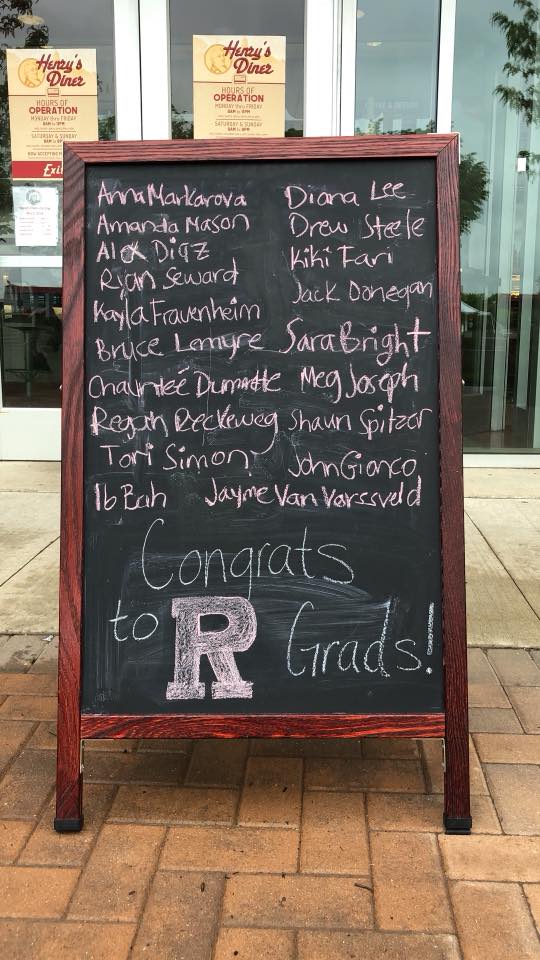 Henry's
Diner
HOURS OF
OPERATION
MONDAY thru FRIDAY
SATURDAY & SUNDAY
Henry's
Diner
HOURS OF
OPERATION
MONDAY thru FRIDAY
SATURDAY & SUNDAY
Anna Markarova Diana Lee
Amanda Mason Drew Steele
Alex Diaz Kiki Fari
Ryan Seward Jack Donegan
Kayla Frauenheim
Bruce Lemyre Sara Bright
Meg Joseph
Regan Deckeweg Shaun Spitzer
Tori Simon John Gionco
Ib Bah Jayme Van Varssveld
Congrats
to R Grads!